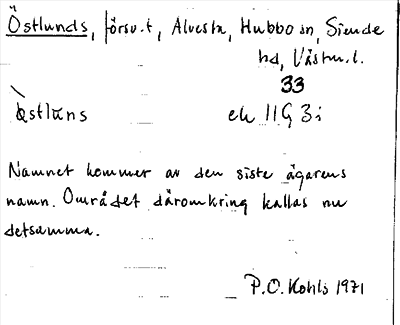 Östlunds, försv.t, Alvesta, Hubbo sn, Siende
hd, Västm.l.
33
östlũns ek 11G 3i
Namnet kommer av den siste ägarens
namn. Området däromkring kallas nu
detsamma.
P.O. Kohls 1971